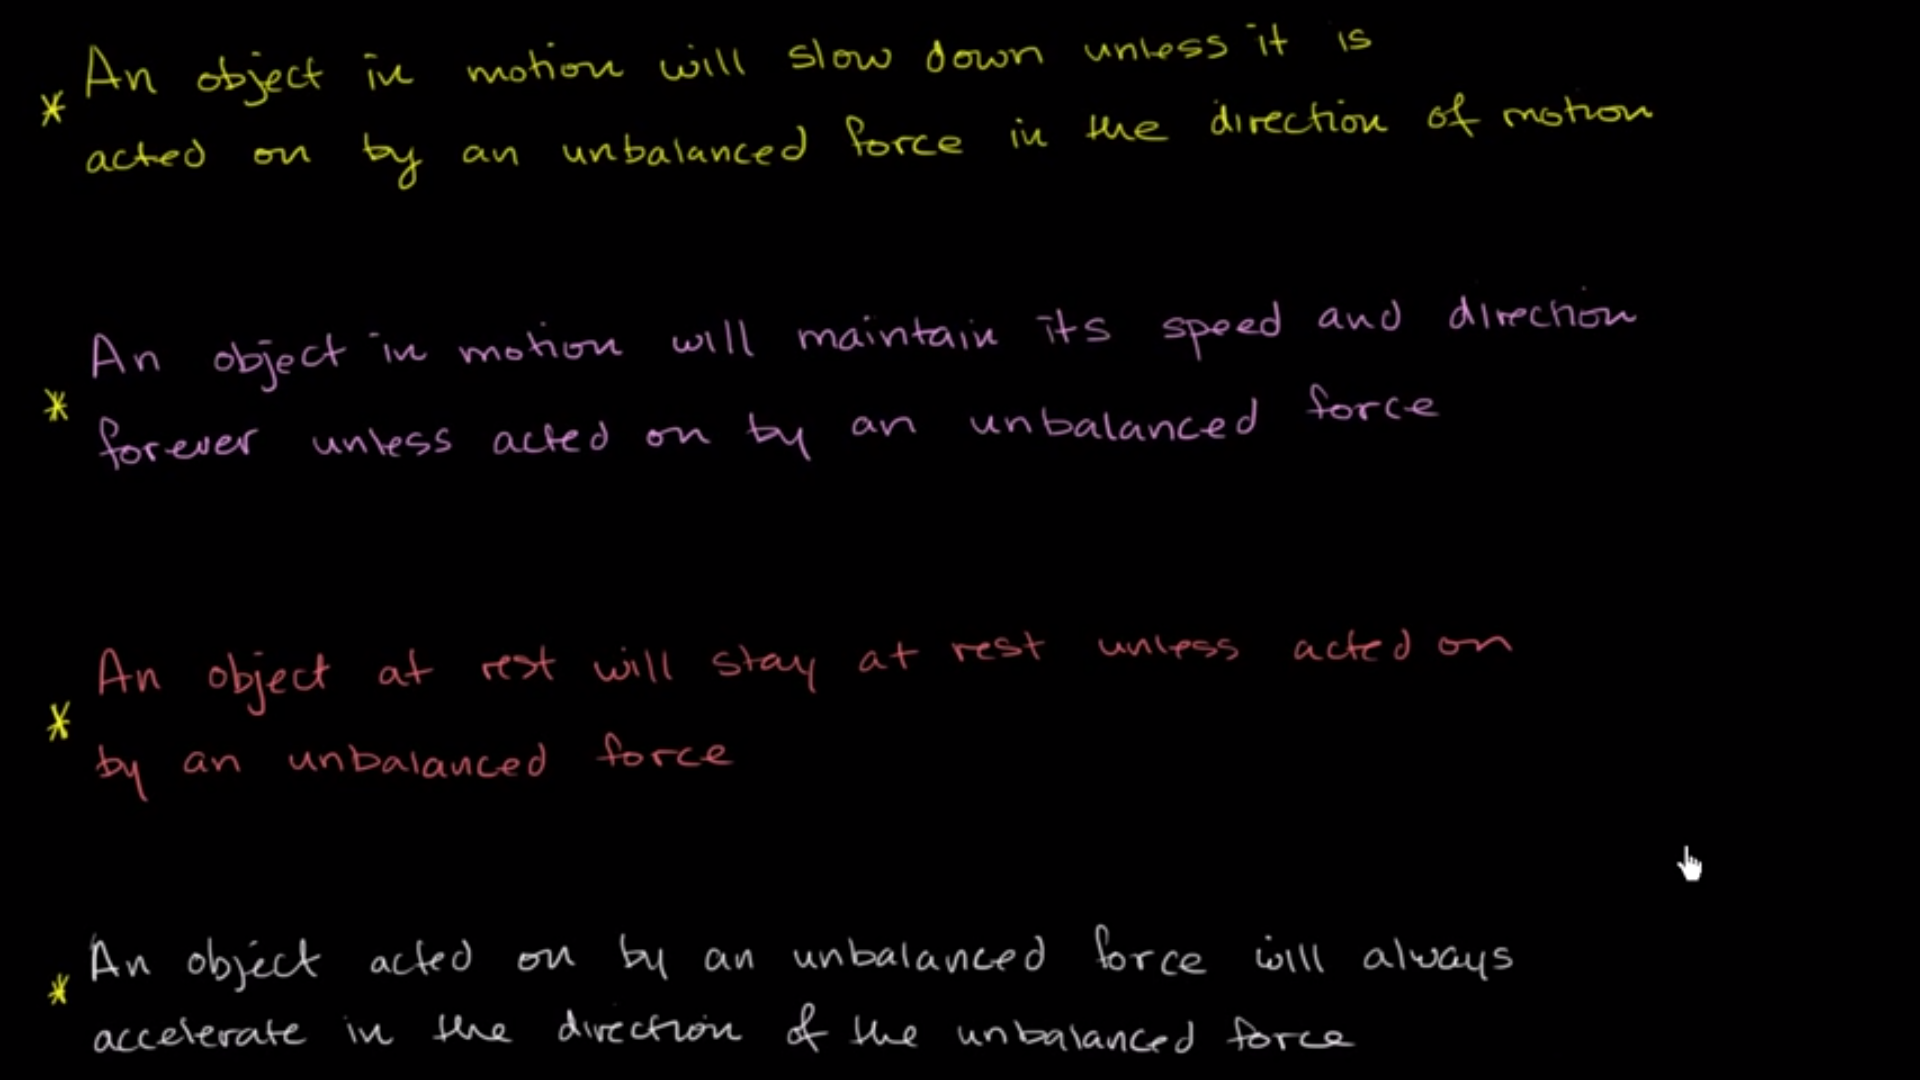 * An object in motion will slow down unless it is
acted on by an unbalanced force in the direction of motion
* An object in motion will maintain its speed and direction
forever unless acted on by an unbalanced force
* An object at rest will stay at rest unless acted on
by an unbalanced force
* An object acted on by an unbalanced force will always
accelerate in the direction of the unbalanced force